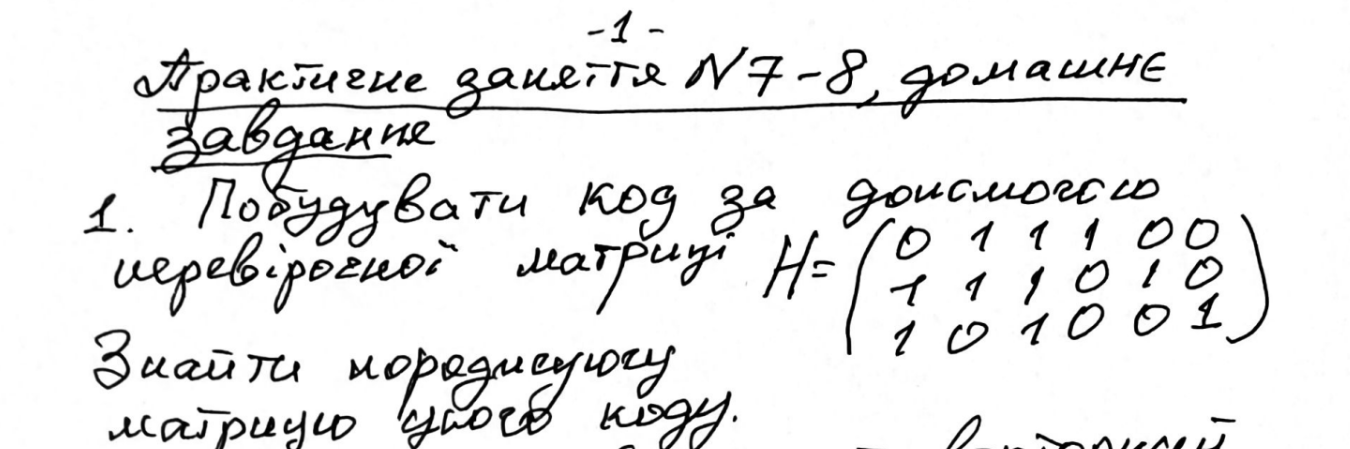 -1-
Практичне заняття №7-8, домашнє
завдання
1. Побудувати код за допомогою
перевірочної матриці H= (0 1 1 1 0 0
1 1 1 0 1 0
1 0 1 0 0 1)
Знайти породжуючу
матрицю цього коду.